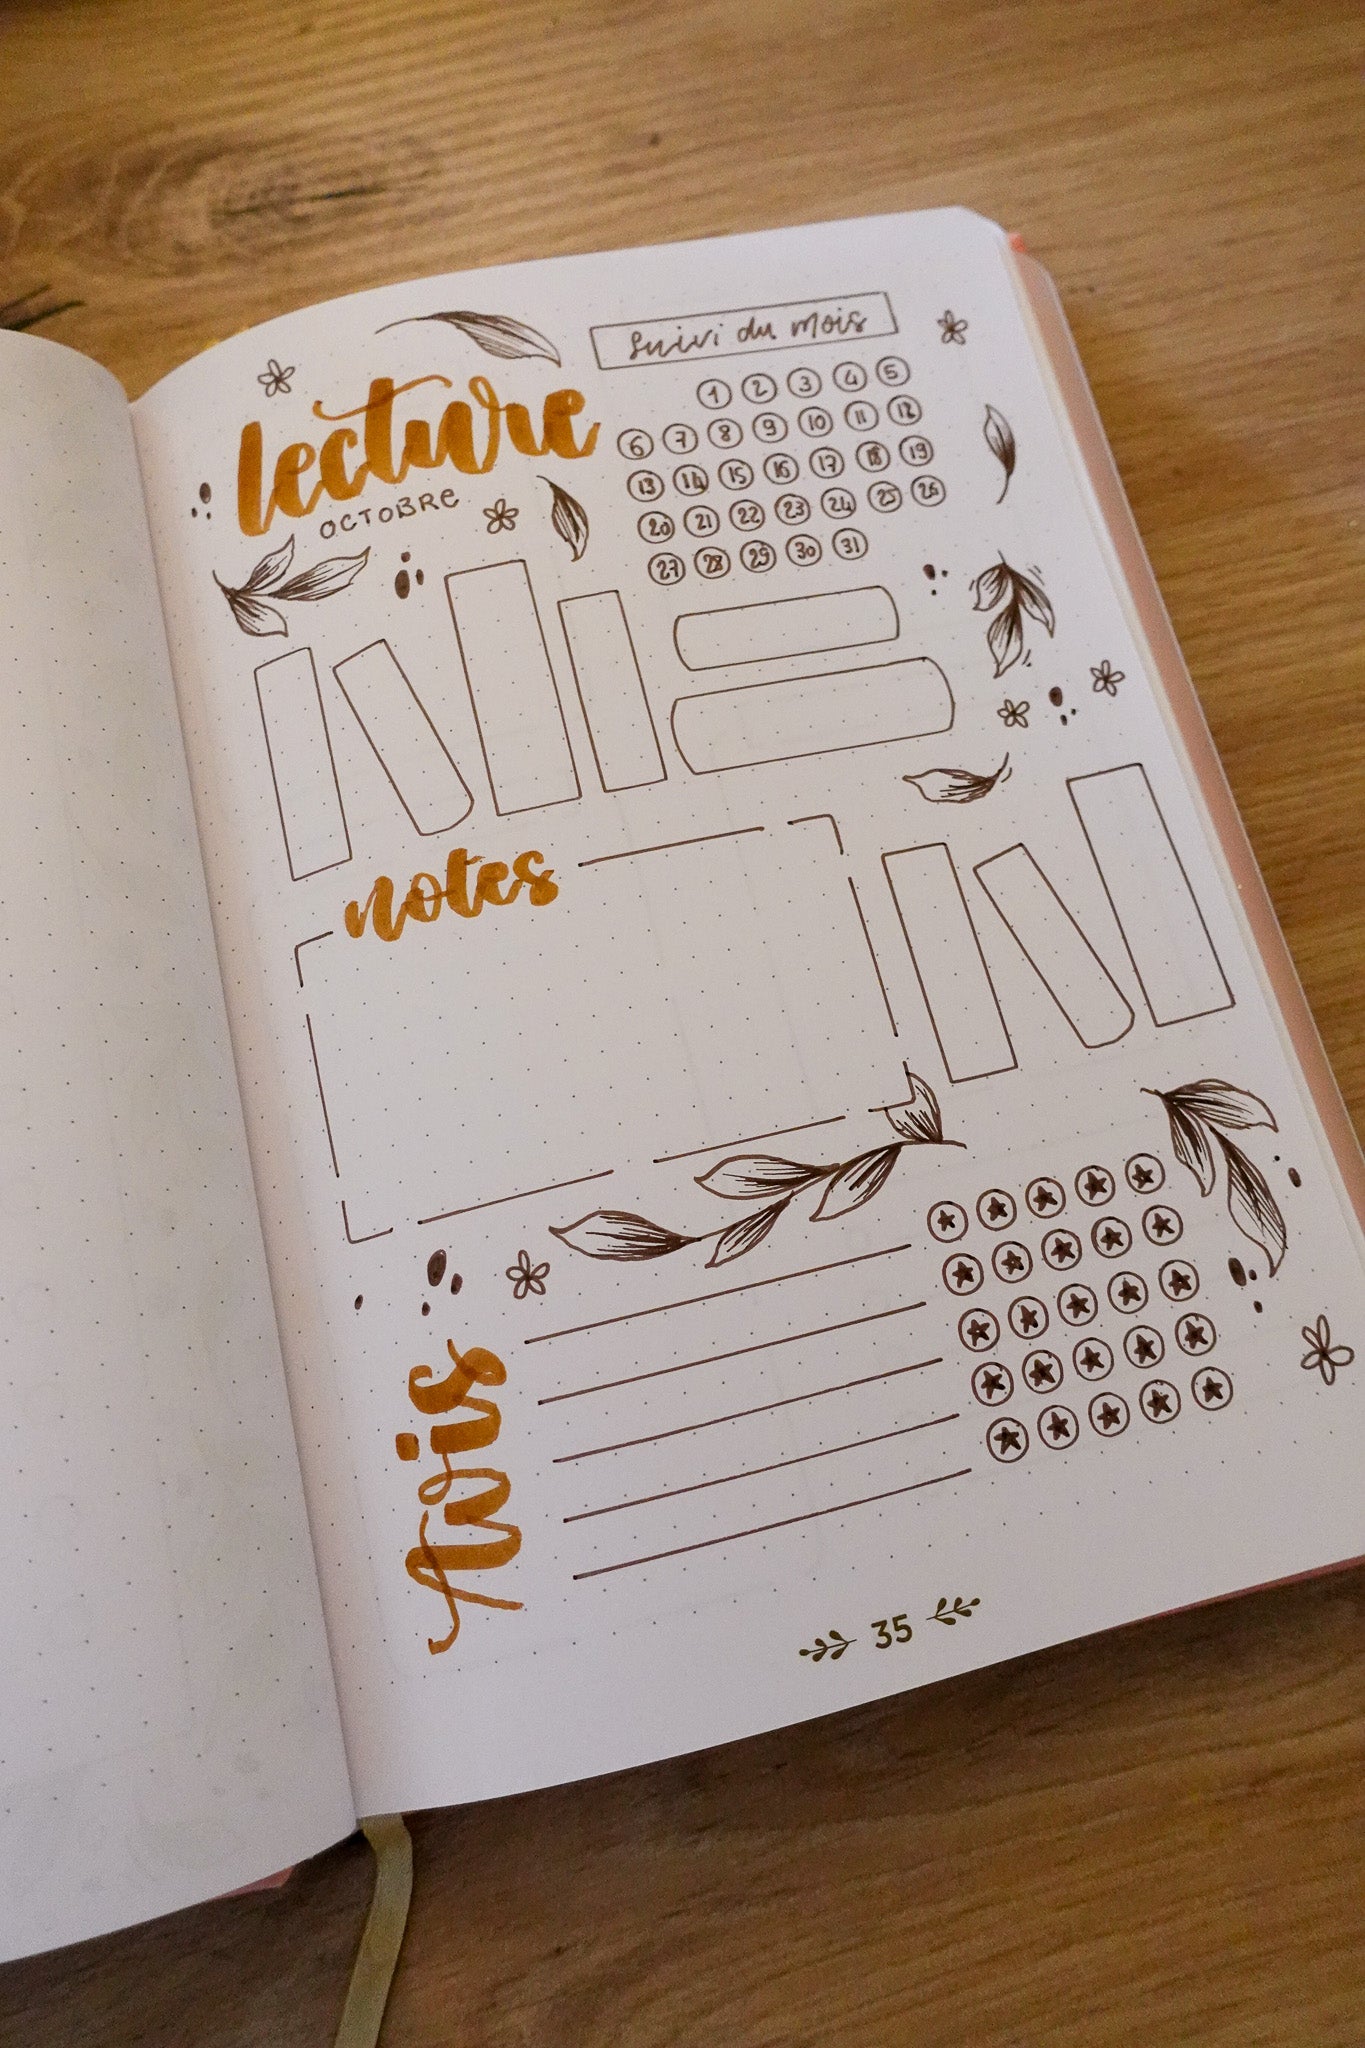 lecture
OCTOBRE
suivi du mois
1 2 3 4 5
6 7 8 9 10 11 12
13 14 15 16 17 18 19
20 21 22 23 24 25 26
27 28 29 30 31
notes
Avis
35